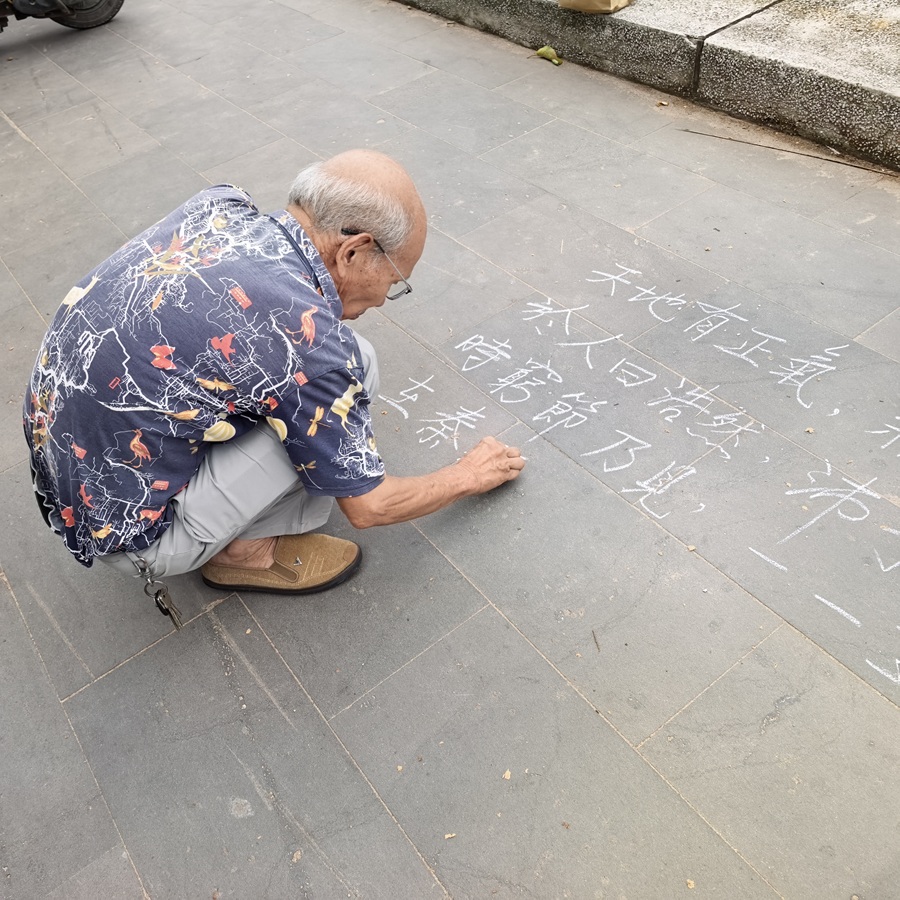 天地有正氣,
於人曰浩然, 沛
時窮節乃見, 一一
去秦